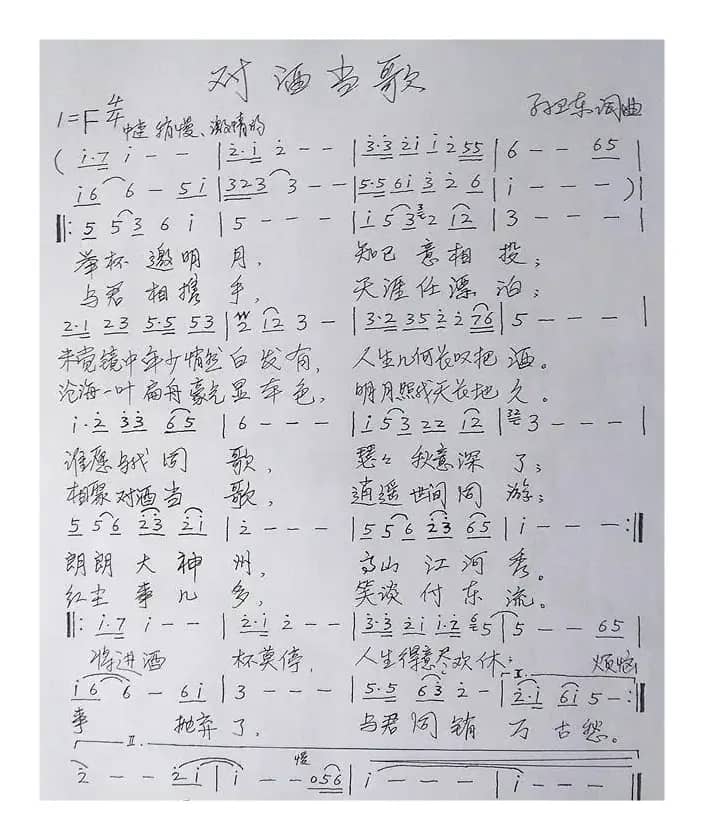 对酒当歌
孙卫东词曲
1=F 4/4 中速稍慢、激情的
( i·7 i - - | 2·i 2 - - | 3·3 2i i2 55 | 6 - - 65 |
i6 6 - 5i | 323 3 - - | 5·5 6i 3 2 6 | i - - - ) |
‖: 5 53 6 i | 5 - - - | i 53 2 i2 | 3 - - - |
举杯邀明月, 知己意相投;
与君相携手, 天涯任漂泊;
2·1 23 5·5 53 | 2 i2 3 - | 3·2 35 2 2 76 | 5 - - - |
未觉镜中年少悄然白发有, 人生几何长叹把酒。
沧海一叶扁舟豪气显本色, 明月照我天长地久。
i·2 33 65 | 6 - - - | i 53 22 i2 | 3 - - - |
谁愿与我同歌, 瑟瑟秋意深了;
相聚对酒当歌, 逍遥世间同游;
5 56 23 2i | 2 - - - | 5 56 23 65 | i - - - :‖
朗朗大神州, 高山江河秀。
红尘事几多, 笑谈付东流。
‖: i·7 i - - | 2·i 2 - - | 3·3 2i i·2 5 | 5 - - 65 |
将进酒 杯莫停, 人生得意尽欢休; 烦恼
i6 6 - 6i | 3 - - - | 5·5 63 2 - | I. 2·i 6i 5 - :‖
事 抛弃了, 与君同销万古愁。
II. 慢
2 - - 2i | i - - 056 | i - - - | i - - - ‖